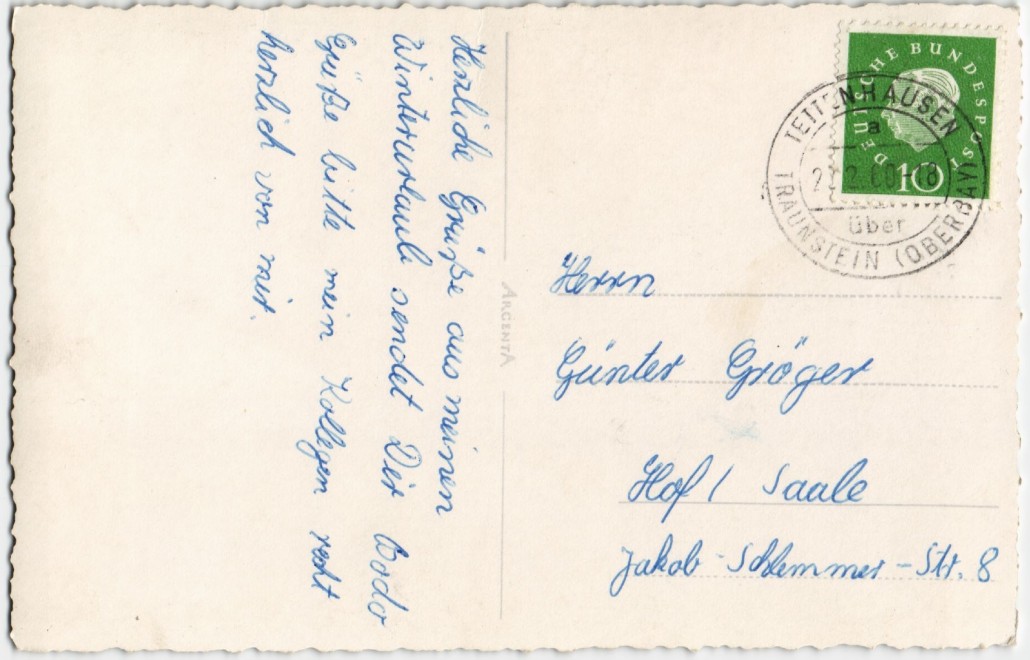 Herzliche Grüße aus meinen
Winterurlaub sendet Dir Bodo
Grüße bitte mein Kollegen recht
herzlich von mir.
ARGENTA
DEUTSCHE BUNDESPOST
10
TETTENHAUSEN
a
2.60-18
über
TRAUNSTEIN (OBERBAY)
Herrn
Günter Gröger
Hof / Saale
Jakob-Schlemmer-Str. 8